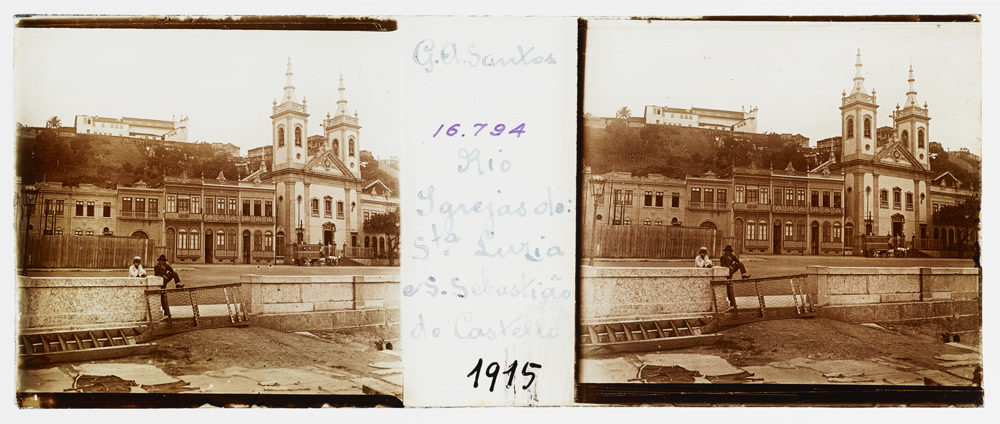 G. A. Santos
16.794
Rio
Igrejas de:
Sta Luzia
e S. Sebastião
do Castello
1915